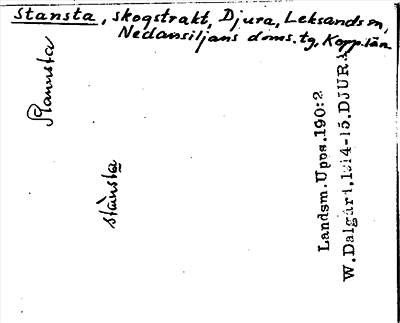 Stansta, skogstrakt, Djura, Leksands sn,
Nedansiljans doms. tg, Kopp. län
Stannsta
stànsta
Landsm. Upps. 190:2
W. Dalgärt, 1914-15. DJURA